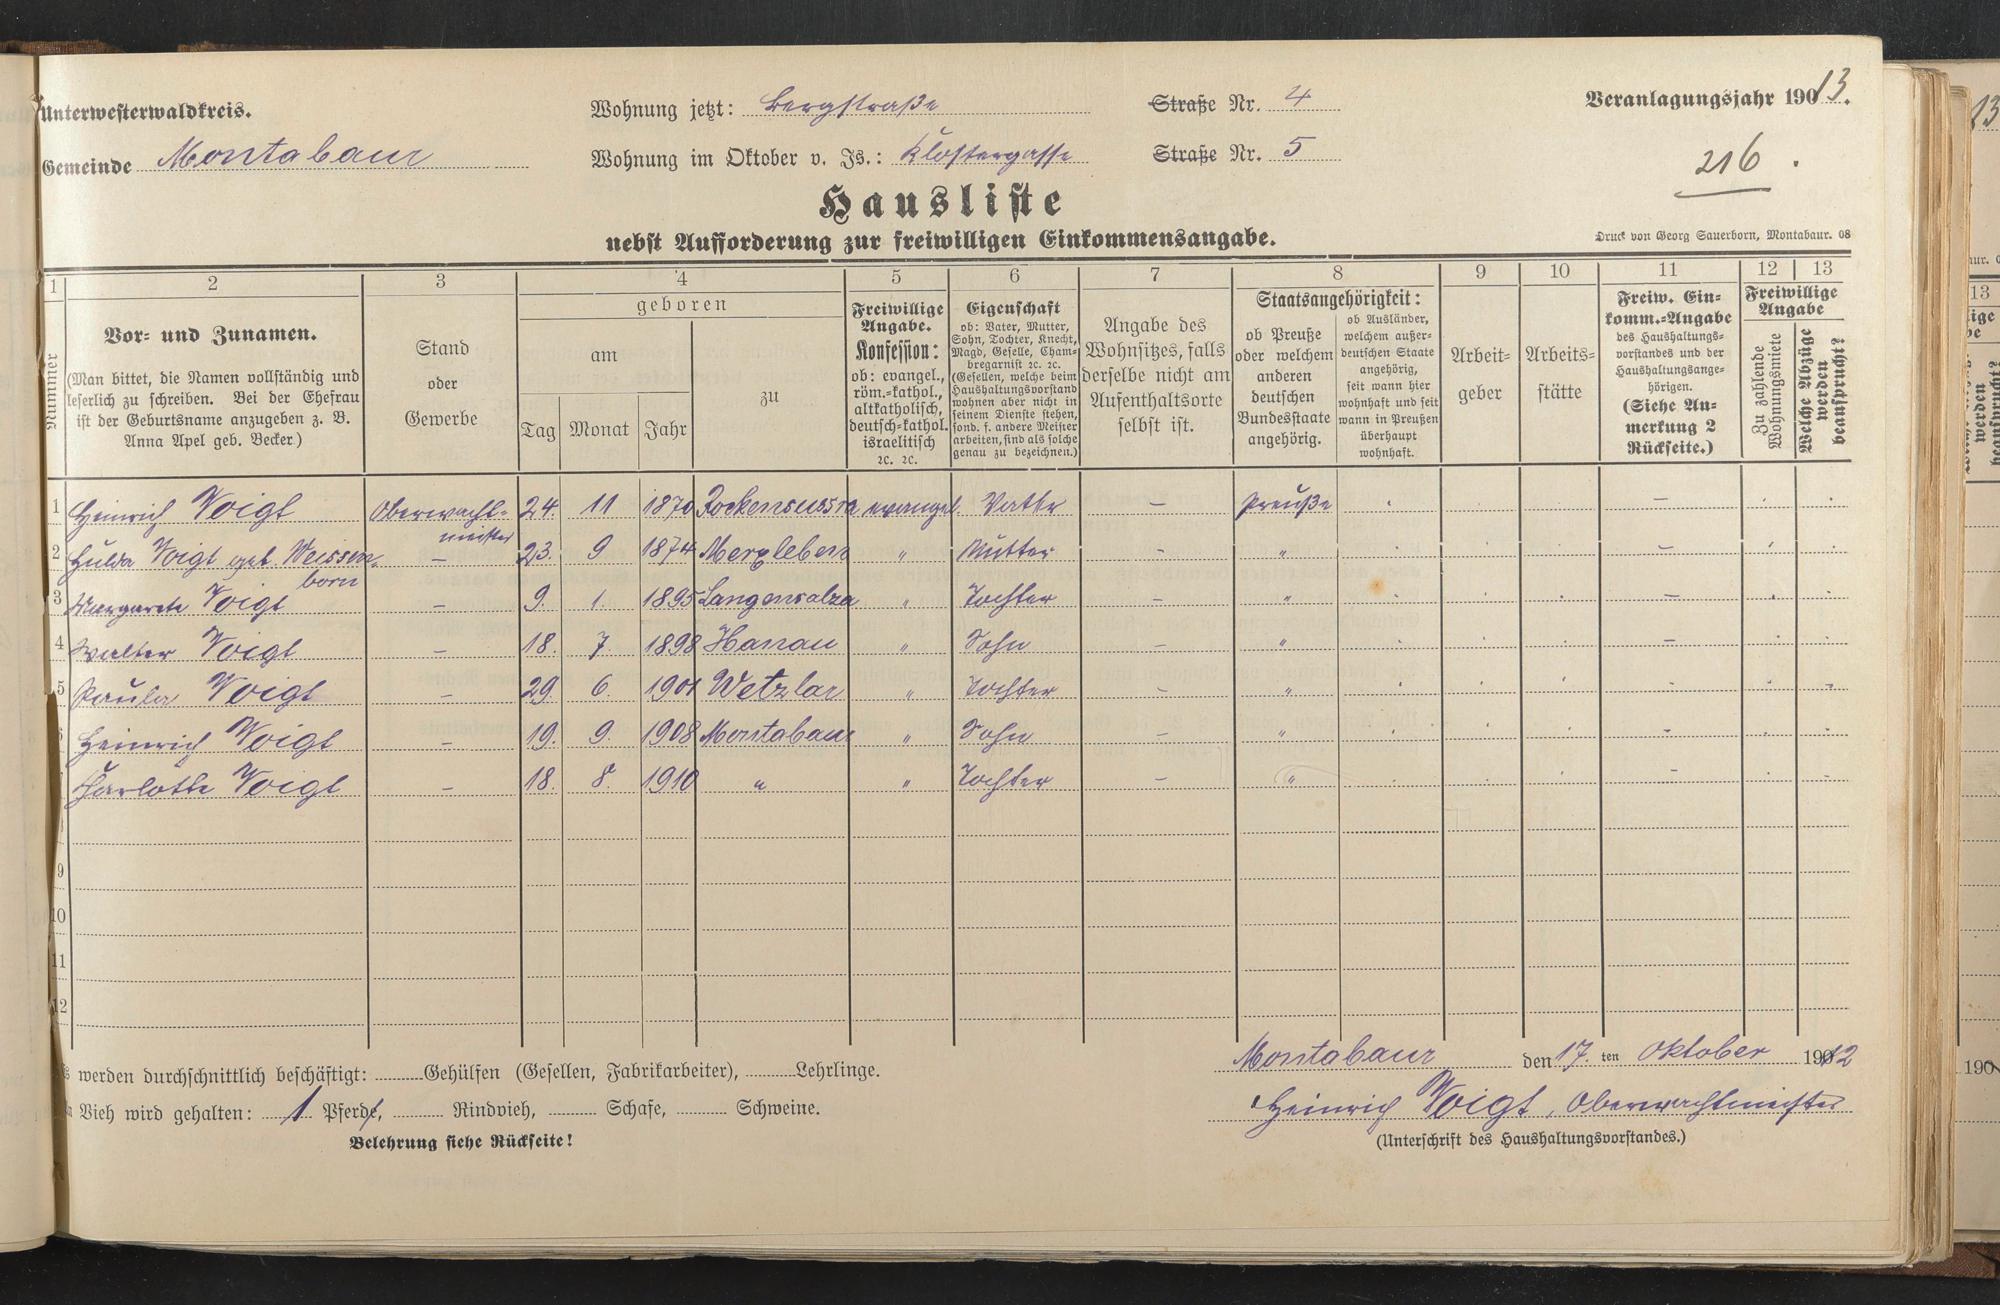 Unterwesterwaldkreis.
Gemeinde Montabaur
Wohnung jetzt: Bergstraße Straße Nr. 4
Wohnung im Oktober v. Js.: Klostergasse Straße Nr. 5
Veranlagungsjahr 1913.
216.
Hausliste
nebst Aufforderung zur freiwilligen Einkommensangabe.
Druck von Georg Sauerborn, Montabaur. 08
1 2 3 4 5 6 7 8 9 10 11 12 13
Nummer
Vor- und Zunamen.
(Man bittet, die Namen vollständig und
leserlich zu schreiben. Bei der Ehefrau
ist der Geburtsname anzugeben z. B.
Anna Apel geb. Becker.)
Stand
oder
Gewerbe
geboren
am
Tag Monat Jahr
zu
Freiwillige
Angabe.
Konfession:
ob: evangel.,
röm.-kathol.,
altkatholisch,
deutsch-kathol.
israelitisch
ꝛc. ꝛc.
Eigenschaft
ob: Vater, Mutter,
Sohn, Tochter, Knecht,
Magd, Geselle, Cham-
bregarnist ꝛc. ꝛc.
(Gesellen, welche beim
Haushaltungsvorstand
wohnen aber nicht in
seinem Dienste stehen,
sond. f. andere Meister
arbeiten, sind als solche
genau zu bezeichnen.)
Angabe des
Wohnsitzes, falls
derselbe nicht am
Aufenthaltsorte
selbst ist.
Staatsangehörigkeit:
ob Preuße
oder welchem
anderen
deutschen
Bundesstaate
angehörig.
ob Ausländer,
welchem außer-
deutschen Staate
angehörig,
seit wann hier
wohnhaft und seit
wann in Preußen
überhaupt
wohnhaft.
Arbeit-
geber
Arbeits-
stätte
Freiw. Ein-
komm.-Angabe
des Haushaltungs-
vorstandes und der
Haushaltungsange-
hörigen.
(Siehe An-
merkung 2
Rückseite.)
Freiwillige
Angabe
Zu zahlende
Wohnungsmiete
Welche Abzüge
werden
beansprucht?
1 Heinrich Voigt Oberwacht-meister 24. 11 1870 Rockensussra evangel. Vatter — Preuße . . . — . .
2 Hulda Voigt geb. Weissen-born — 23. 9 1874 Merxleben " Mutter — " . . . — . .
3 Margarete Voigt — 9. 1. 1895 Langensalza " Tochter — " . . . — . .
4 Walter Voigt — 18. 7. 1898 Hanau " Sohn — " . . . — . .
5 Paula Voigt — 29. 6. 1901 Wetzlar " Tochter — " . . . — . .
Heinrich Voigt — 19. 9. 1908 Montabaur " Sohn — " . . . — . .
Charlotte Voigt — 18. 8. 1910 " " Tochter — " . . . — . .
9
10
11
12
werden durchschnittlich beschäftigt: Gehülfen (Gesellen, Fabrikarbeiter), Lehrlinge.
Vieh wird gehalten: 1 Pferd, Rindvieh, Schafe, Schweine.
Belehrung siehe Rückseite!
Montabaur den 17. ten Oktober 1912
Heinrich Voigt, Oberwachtmeister
(Unterschrift des Haushaltungsvorstandes.)